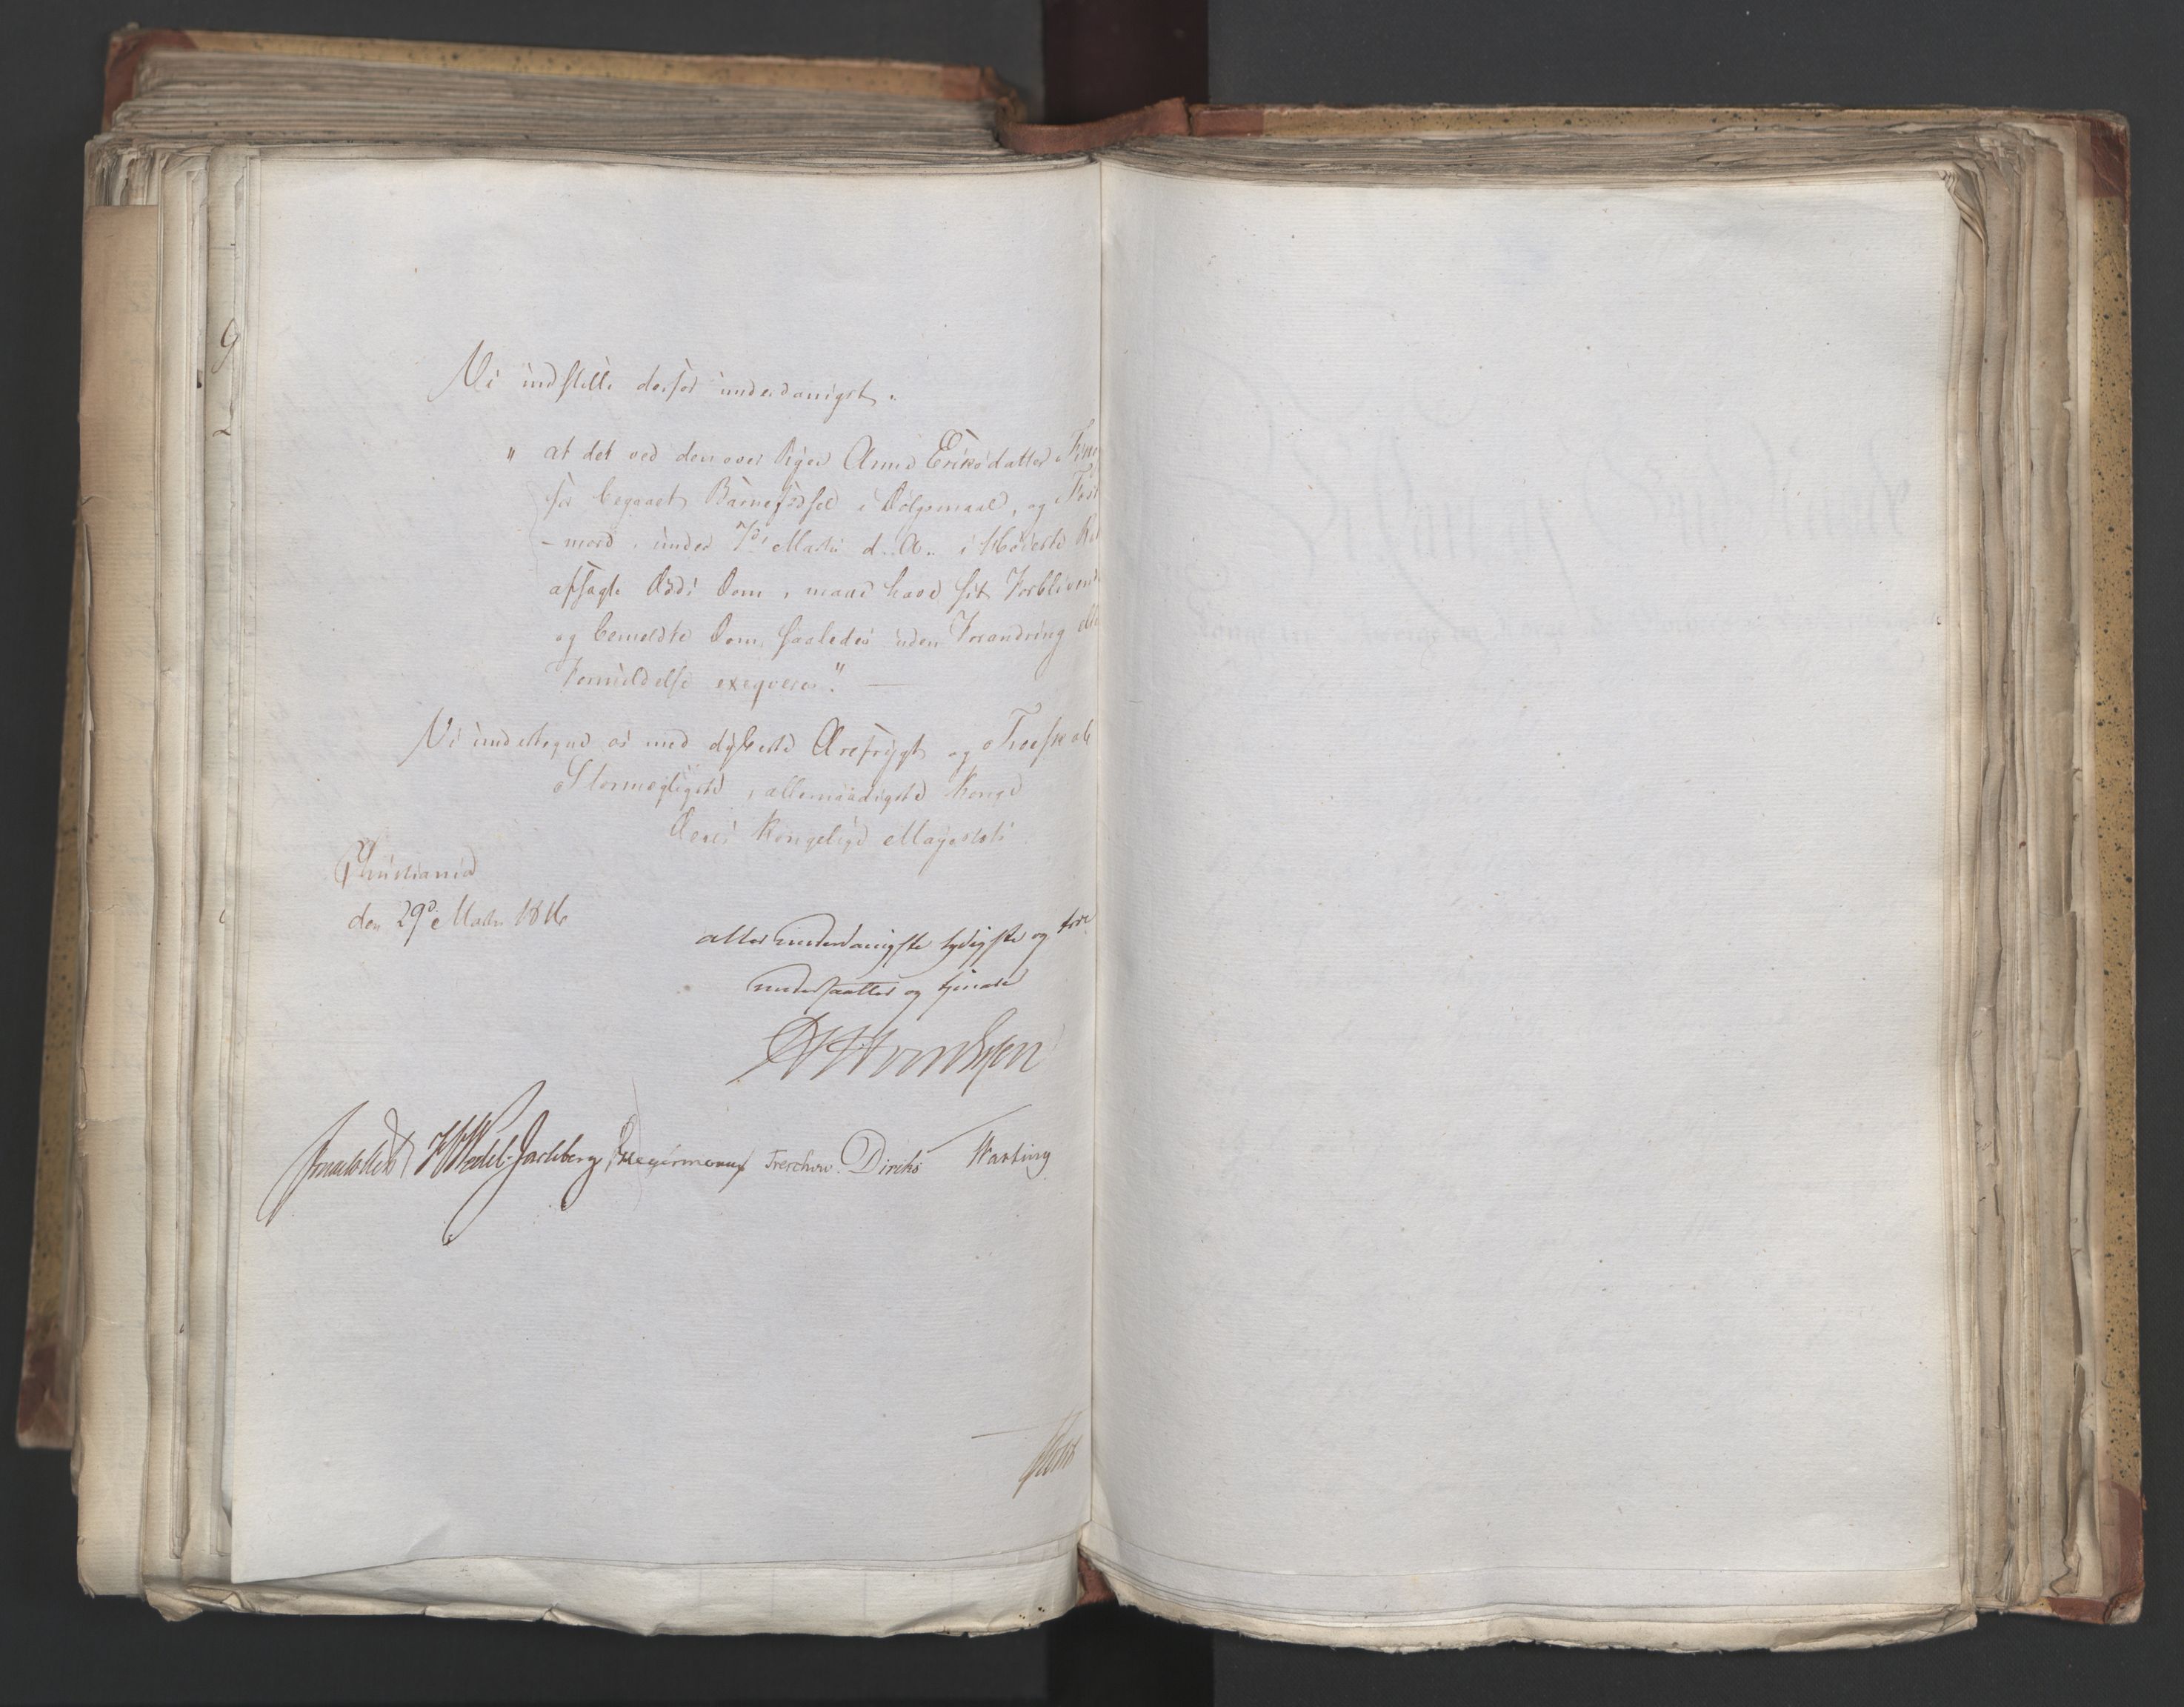 Vi indstille derfor underdanigst:
" at det ved den over Pigen Anne Eriksdatter
for begaaet Barnefødsel i Dølgsmaal, og
- mord, under 7de Martii d. A. i Høieste
afsagte Døds Dom, maae have sit Forblivend
og bemeldte Dom saaledes uden Forandring elle
Formildelse exeqveres." —
Vi undertegne os med dybeste Ærefrygt og Troeskab
Stormægtigste, allernaadigste Konge
Deres Kongelige Majestæts
Christiania
den 29de Martii 1816
allerunderdanigste lydigste og troe
undersaatter og tjenere
Sommerhielm HWedel-Jarlsberg, DHegermann Treschow. Diriks
Holst